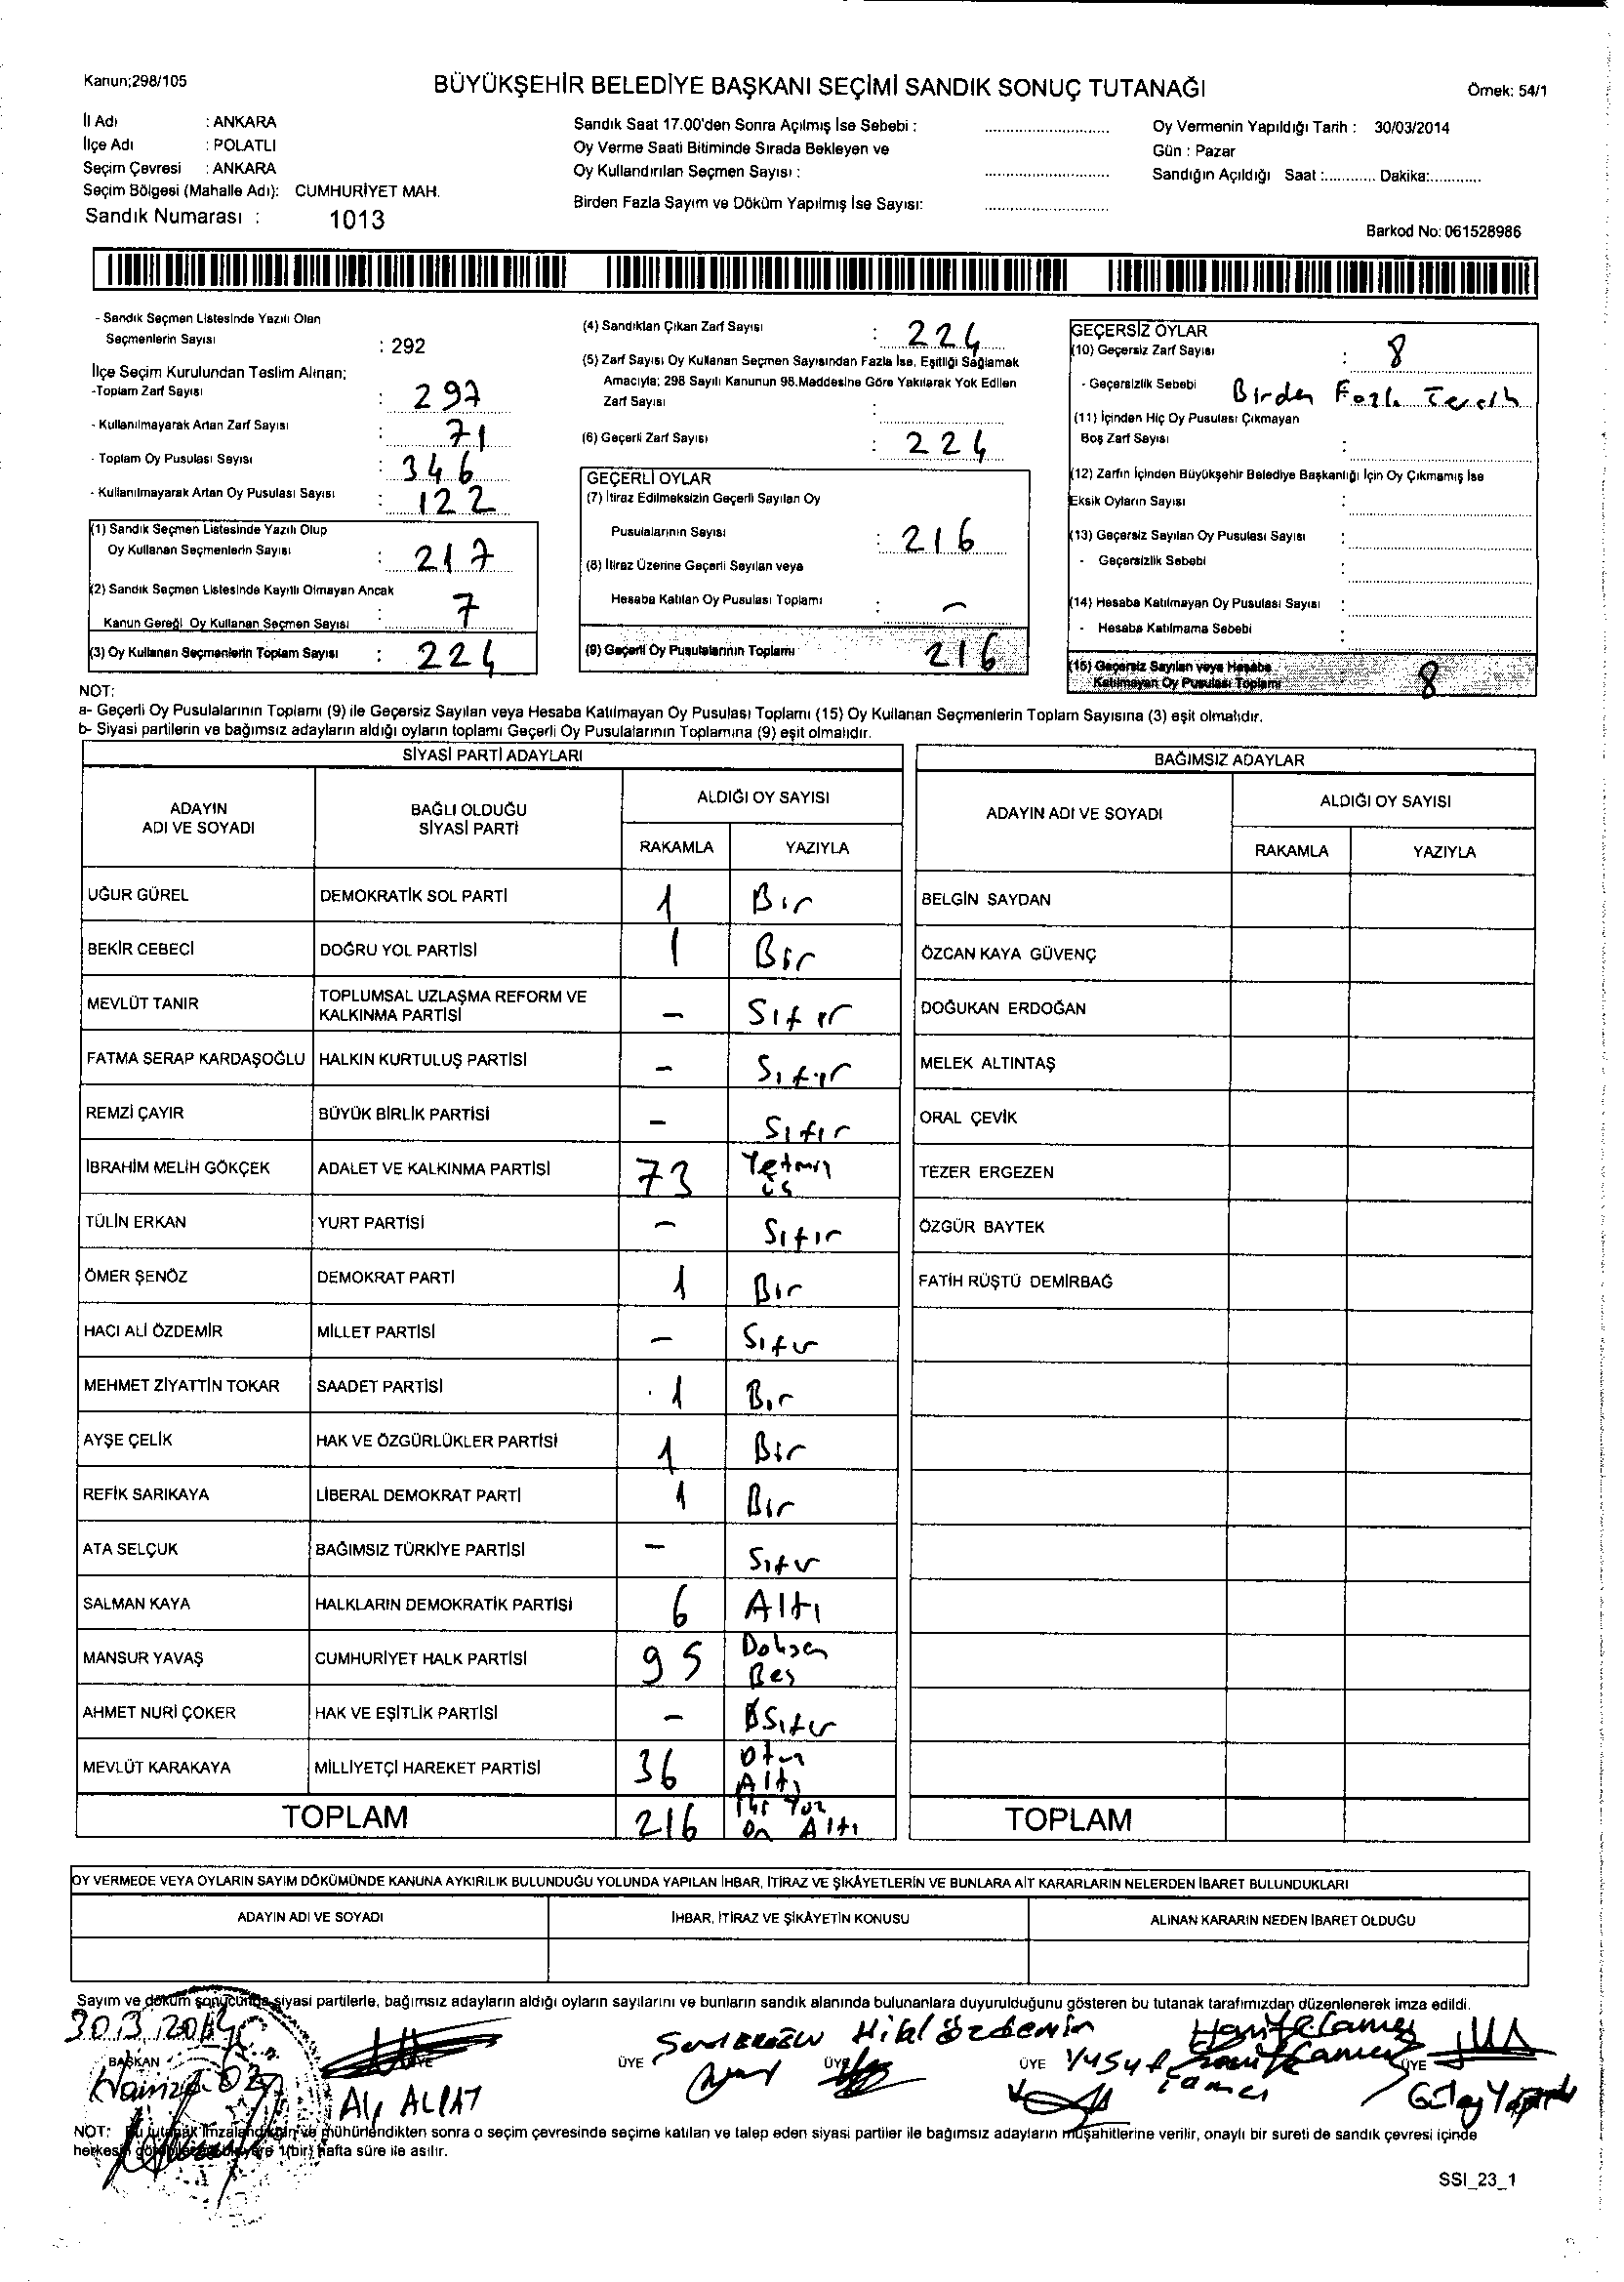 Kanun;298/105
BÜYÜKŞEHİR BELEDİYE BAŞKANI SEÇİMİ SANDIK SONUÇ TUTANAĞI
Örnek: 54/1
İl Adı : ANKARA
İlçe Adı : POLATLI
Seçim Çevresi : ANKARA
Seçim Bölgesi (Mahalle Adı): CUMHURİYET MAH.
Sandık Numarası : 1013
Sandık Saat 17.00'den Sonra Açılmış İse Sebebi :
Oy Verme Saati Bitiminde Sırada Bekleyen ve
Oy Kullandırılan Seçmen Sayısı :
Birden Fazla Sayım ve Döküm Yapılmış İse Sayısı:
Oy Vermenin Yapıldığı Tarih : 30/03/2014
Gün : Pazar
Sandığın Açıldığı Saat :............ Dakika:............
Barkod No: 061528986
- Sandık Seçmen Listesinde Yazılı Olan
Seçmenlerin Sayısı : 292
İlçe Seçim Kurulundan Teslim Alınan;
-Toplam Zarf Sayısı : 297
- Kullanılmayarak Artan Zarf Sayısı : 71
- Toplam Oy Pusulası Sayısı : 346
- Kullanılmayarak Artan Oy Pusulası Sayısı : 122
(1) Sandık Seçmen Listesinde Yazılı Olup
Oy Kullanan Seçmenlerin Sayısı : 217
(2) Sandık Seçmen Listesinde Kayıtlı Olmayan Ancak
Kanun Gereği Oy Kullanan Seçmen Sayısı : 7
(3) Oy Kullanan Seçmenlerin Toplam Sayısı : 224
(4) Sandıktan Çıkan Zarf Sayısı : 224
(5) Zarf Sayısı Oy Kullanan Seçmen Sayısından Fazla İse, Eşitliği Sağlamak
Amacıyla; 298 Sayılı Kanunun 98.Maddesine Göre Yakılarak Yok Edilen
Zarf Sayısı :
(6) Geçerli Zarf Sayısı : 224
GEÇERLİ OYLAR
(7) İtiraz Edilmeksizin Geçerli Sayılan Oy
Pusulalarının Sayısı : 216
(8) İtiraz Üzerine Geçerli Sayılan veya
Hesaba Katılan Oy Pusulası Toplamı : -
(9) Geçerli Oy Pusulalarının Toplamı 216
GEÇERSİZ OYLAR
(10) Geçersiz Zarf Sayısı : 8
- Geçersizlik Sebebi Birden Fazla Tercih
(11) İçinden Hiç Oy Pusulası Çıkmayan
Boş Zarf Sayısı :
(12) Zarfın İçinden Büyükşehir Belediye Başkanlığı İçin Oy Çıkmamış İse
Eksik Oyların Sayısı :
(13) Geçersiz Sayılan Oy Pusulası Sayısı :
- Geçersizlik Sebebi :
(14) Hesaba Katılmayan Oy Pusulası Sayısı :
- Hesaba Katılmama Sebebi :
(15) Geçersiz Sayılan veya Hesaba
Katılmayan Oy Pusulası Toplamı 8
NOT:
a- Geçerli Oy Pusulalarının Toplamı (9) ile Geçersiz Sayılan veya Hesaba Katılmayan Oy Pusulası Toplamı (15) Oy Kullanan Seçmenlerin Toplam Sayısına (3) eşit olmalıdır.
b- Siyasi partilerin ve bağımsız adayların aldığı oyların toplamı Geçerli Oy Pusulalarının Toplamına (9) eşit olmalıdır.
SİYASİ PARTİ ADAYLARI
ADAYIN ADI VE SOYADI
BAĞLI OLDUĞU SİYASİ PARTİ
ALDIĞI OY SAYISI
RAKAMLA YAZIYLA
UĞUR GÜREL DEMOKRATİK SOL PARTİ 1 Bir
BEKİR CEBECİ DOĞRU YOL PARTİSİ 1 Bir
MEVLÜT TANIR TOPLUMSAL UZLAŞMA REFORM VE KALKINMA PARTİSİ - Sıfır
FATMA SERAP KARDAŞOĞLU HALKIN KURTULUŞ PARTİSİ - Sıfır
REMZİ ÇAYIR BÜYÜK BİRLİK PARTİSİ - Sıfır
İBRAHİM MELİH GÖKÇEK ADALET VE KALKINMA PARTİSİ 73 Yetmiş üç
TÜLİN ERKAN YURT PARTİSİ - Sıfır
ÖMER ŞENÖZ DEMOKRAT PARTİ 1 Bir
HACI ALİ ÖZDEMİR MİLLET PARTİSİ - Sıfır
MEHMET ZİYATTİN TOKAR SAADET PARTİSİ 1 Bir
AYŞE ÇELİK HAK VE ÖZGÜRLÜKLER PARTİSİ 1 Bir
REFİK SARIKAYA LİBERAL DEMOKRAT PARTİ 1 Bir
ATA SELÇUK BAĞIMSIZ TÜRKİYE PARTİSİ - Sıfır
SALMAN KAYA HALKLARIN DEMOKRATİK PARTİSİ 6 Altı
MANSUR YAVAŞ CUMHURİYET HALK PARTİSİ 95 Doksan Beş
AHMET NURİ ÇOKER HAK VE EŞİTLİK PARTİSİ - Sıfır
MEVLÜT KARAKAYA MİLLİYETÇİ HAREKET PARTİSİ 36 Otuz Altı
TOPLAM 216 İki Yüz On Altı
BAĞIMSIZ ADAYLAR
ADAYIN ADI VE SOYADI
ALDIĞI OY SAYISI
RAKAMLA YAZIYLA
BELGİN SAYDAN
ÖZCAN KAYA GÜVENÇ
DOĞUKAN ERDOĞAN
MELEK ALTINTAŞ
ORAL ÇEVİK
TEZER ERGEZEN
ÖZGÜR BAYTEK
FATİH RÜŞTÜ DEMİRBAĞ
TOPLAM
OY VERMEDE VEYA OYLARIN SAYIM DÖKÜMÜNDE KANUNA AYKIRILIK BULUNDUĞU YOLUNDA YAPILAN İHBAR, İTİRAZ VE ŞİKÂYETLERİN VE BUNLARA AİT KARARLARIN NELERDEN İBARET BULUNDUKLARI
ADAYIN ADI VE SOYADI
İHBAR, İTİRAZ VE ŞİKÂYETİN KONUSU
ALINAN KARARIN NEDEN İBARET OLDUĞU
Sayım ve döküm sonucunda siyasi partilerle, bağımsız adayların aldığı oyların sayılarını ve bunların sandık alanında bulunanlara duyurulduğunu gösteren bu tutanak tarafımızdan düzenlenerek imza edildi.
30.3.2014
BAŞKAN
Hamza
ÜYE
Ali ALPAT
ÜYE
Hilal Özdemir
ÜYE
ÜYE Yusuf
Hanife Camcı
ÜYE
NOT: Bu tutanak imzalandıktan ve mühürlendikten sonra o seçim çevresinde seçime katılan ve talep eden siyasi partiler ile bağımsız adayların müşahitlerine verilir, onaylı bir sureti de sandık çevresi içinde
herkesin görebileceği bir yere 1(bir) hafta süre ile asılır.
SSI_23_1